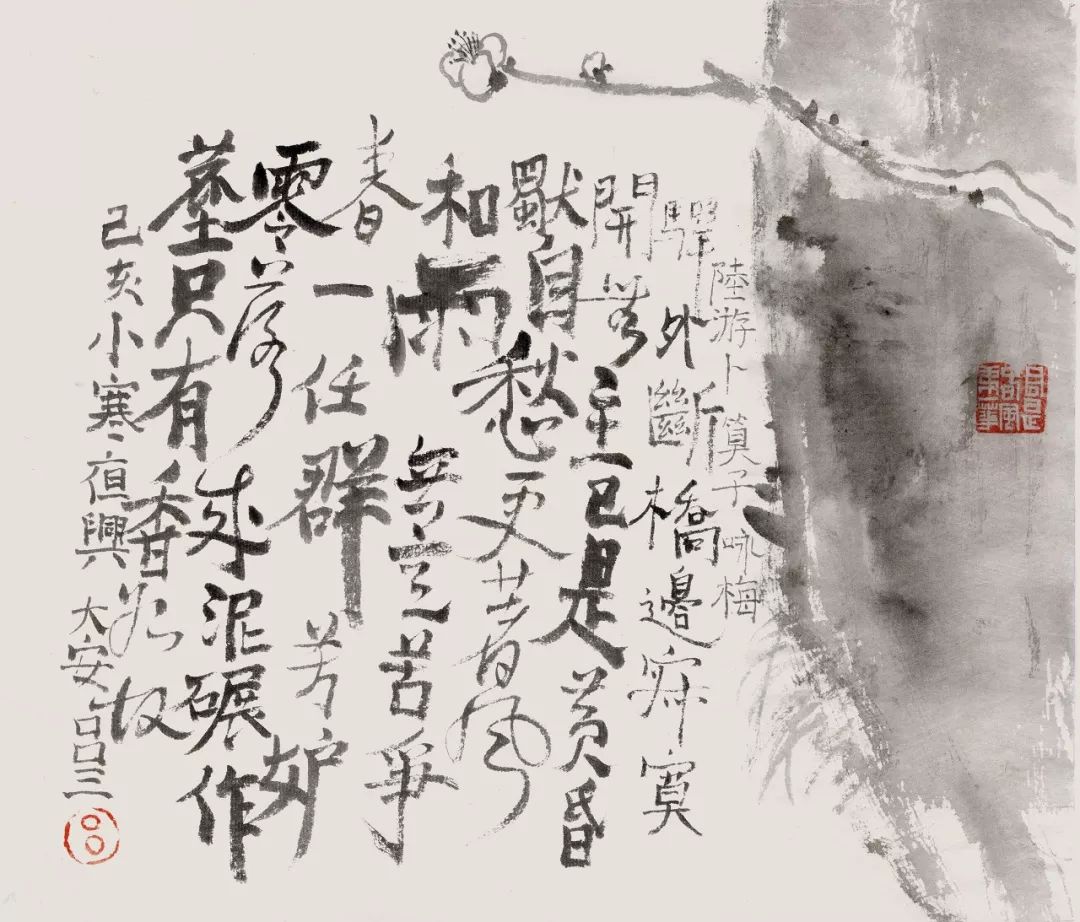 陸游卜算子咏梅
驛外斷橋邊寂寞
開無主已是黃昏
獨自愁更著風
和雨無意苦爭
春一任群芳妒
零落成泥碾作
塵只有香如故
己亥小寒夜興 大安吕三